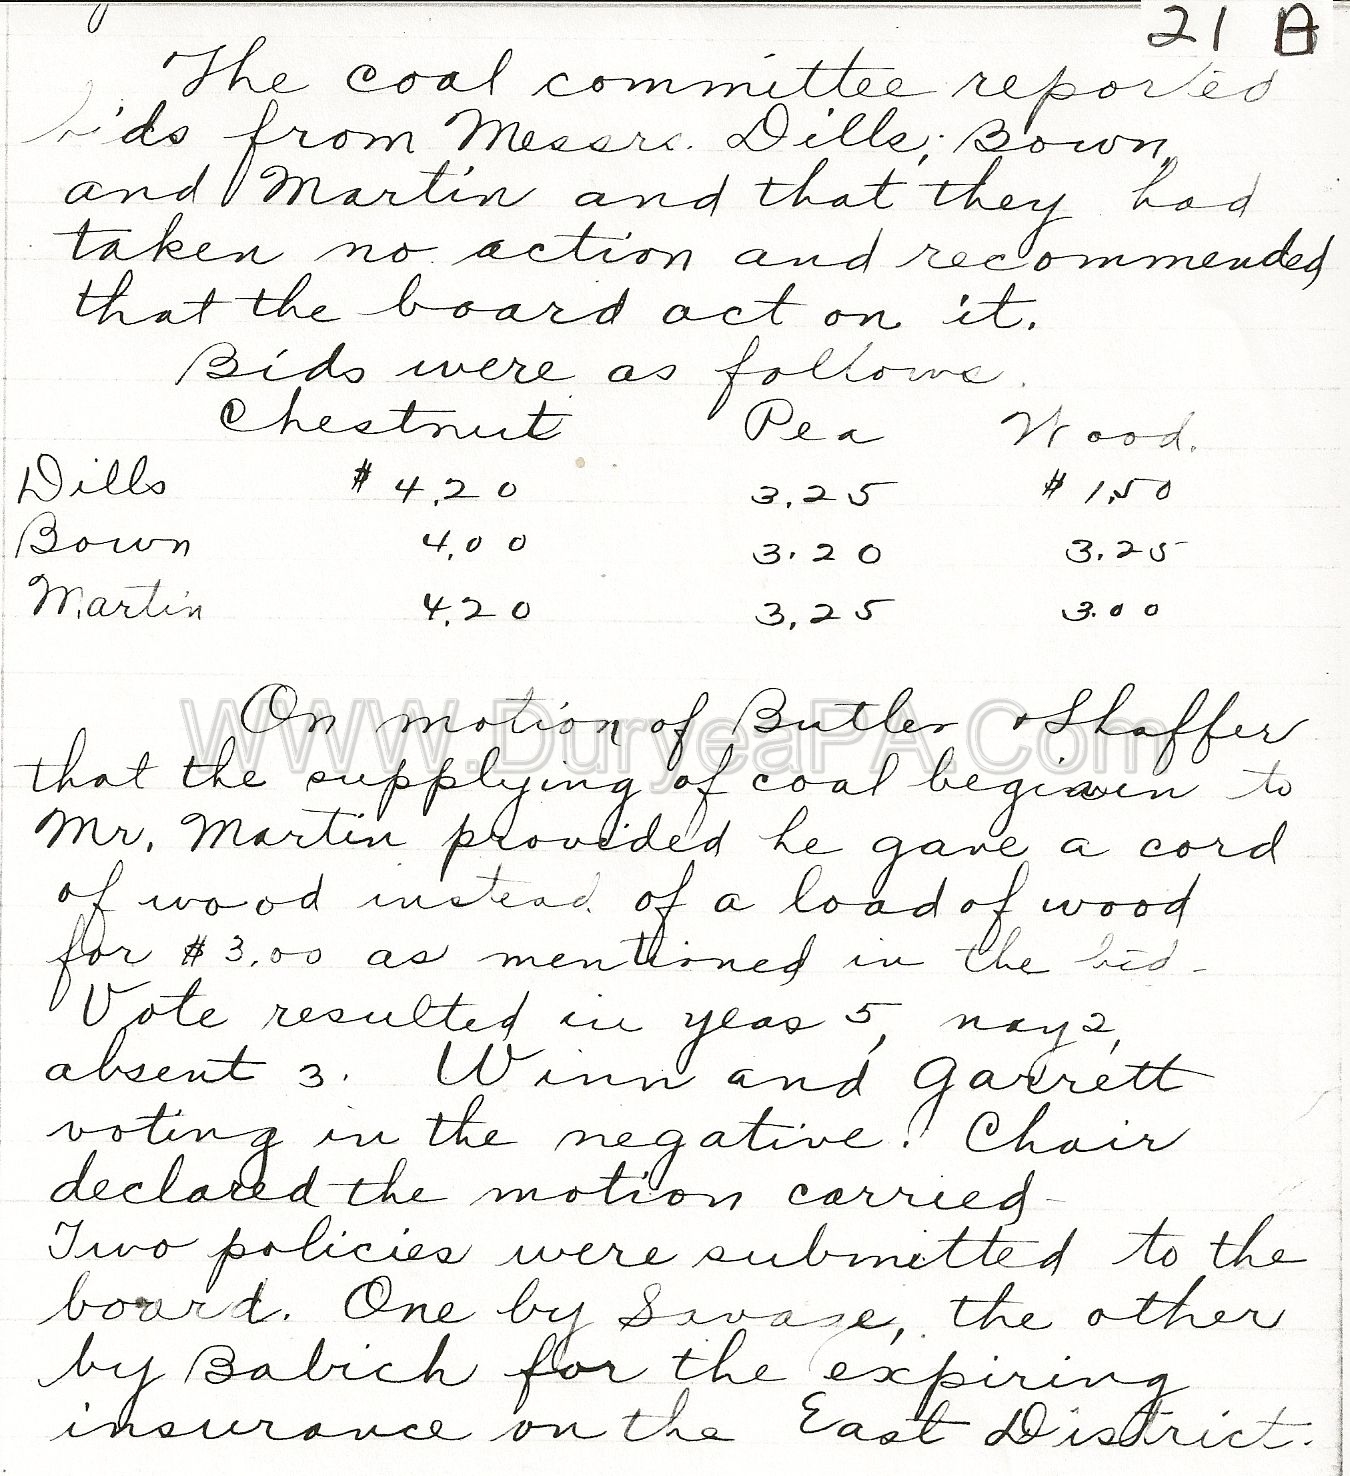 21 A
The coal committee reported
bids from Messrs. Dills, Bown,
and Martin and that they had
taken no action and recommended
that the board act on it.
Bids were as follows.
Chestnut Pea Wood.
Dills $ 4.20 3.25 $ 1.50
Bown 4.00 3.20 3.25
Martin 4.20 3.25 3.00
On motion of Butler & Shaffer
WWW.DuryeaPA.Com
that the supplying of coal be given to
Mr. Martin provided he gave a cord
of wood instead of a load of wood
for $3.00 as mentioned in the bid-
Vote resulted in yeas 5, nay 2,
absent 3. Winn and Garrett
voting in the negative. Chair
declared the motion carried-
Two policies were submitted to the
board. One by Savage, the other
by Babich for the expiring
insurance on the East District.